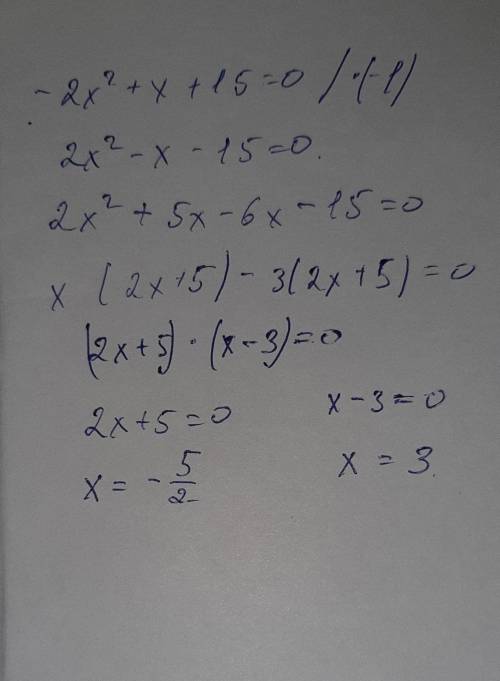 -2x² + x + 15 = 0 / ·(-1)
2x² - x - 15 = 0.
2x² + 5x - 6x - 15 = 0
x (2x + 5) - 3(2x + 5) = 0
(2x + 5) · (x - 3) = 0
2x + 5 = 0 x - 3 = 0
x = - 5/2 x = 3.